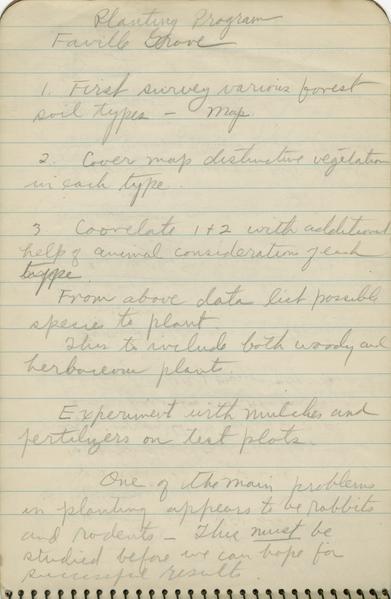 Planting Program
Faville Grove
1. First survey various forest
soil types - Map.
2. Cover map distinctive vegetation
in each type.
3 Coorelate 1+2 with additional
help of animal consideration of each
type.
From above data list possible
species to plant
This to include both woody and
herbaceous plants.
Experiment with mulches and
fertilizers on test plots.
One of the main problems
in planting appears to be rabbits
and rodents - This must be
studied before we can hope for
successful results.